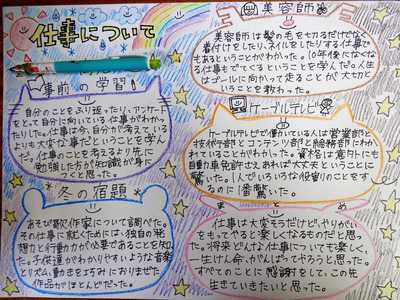 仕事について
事前の学習
自分のことをふり返ったり、アンケート
をとって自分に向いている仕事がわかっ
たりした。仕事は今、自分が考えている
よりも大変な事だということを学ん
だ。仕事のことを考るより先に
勉強した方が知識が身に
つくと思った。
冬の宿題
あそび歌作家について調べた。
その仕事に就くためには、独自の発
想力と行動力が必要であることを知っ
た。子供達がわかりやすいような音楽
とリズム、動きをたくみにおりまぜた
作品がほとんどだった。
美容師
美容師は髪の毛を切るだけでなく
着付けをしたり、ネイルをしたりする仕事で
もあるということがわかった。10年後になくな
る仕事もでてくるということを学んだ。人生
はゴールに向かって走ることが大切と
いうことを教わった。
ケーブルテレビ
ケーブルテレビで働いている人は営業部と
技術部とコンテンツ部と総務部にわか
れていることがわかった。資格は意外にも
自動車免許さえあれば大丈夫ということに
驚いた。1人でいろいろな役割のことをす
るのに1番驚いた。
まとめ
仕事は大変そうだけど、やりがい
をもってやると楽しくなるものだと思っ
た。将来どんな仕事についても楽しく、
一生けん命、がんばってやろうと思った。
すべてのことに感謝をして、この先
生きていきたいと思った。